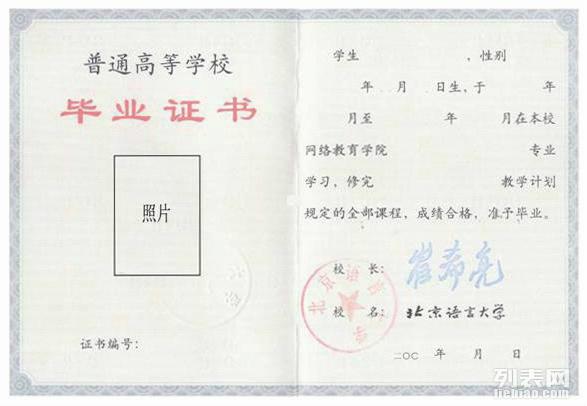 普通高等学校
毕业证书
照片
证书编号:
学生 ,性别
年 月 日生,于 年
月至 年 月在本校
网络教育学院 专业
学习,修完 教学计划
规定的全部课程,成绩合格,准予毕业。
校 长: 崔希亮
校 名: 北京语言大学
二〇〇 年 月 日
列表网
liebiao.com